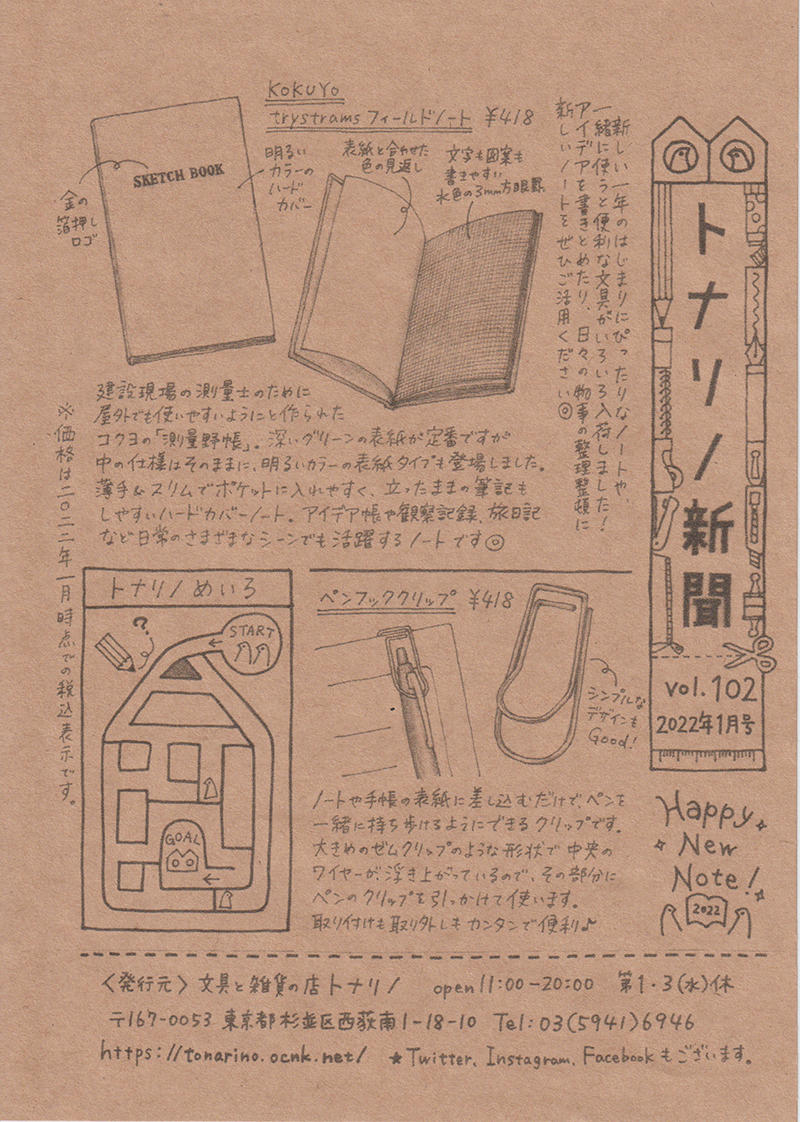 トナリノ新聞
vol. 102
2022年1月号
Happy
New
Note!
2022
新しい一年のはじまりにぴったりなノートや、
一緒に使うと便利な文具がいろいろ入荷しました!
アイデアを書きとめたり、日々の物事の整理整頓に
新しいノートをぜひご活用ください◎
KOKUYO
trystrams フィールドノート ¥418
金の
箔押し
ロゴ
SKETCH BOOK
明るい
カラーの
ハード
カバー
表紙と合わせた
色の見返し
文字も図案も
書きやすい
水色の3mm方眼罫
建設現場の測量士のために
屋外でも使いやすいようにと作られた
コクヨの「測量野帳」。深いグリーンの表紙が定番ですが
中の仕様はそのままに、明るいカラーの表紙タイプも登場しました。
薄手&スリムでポケットに入れやすく、立ったままの筆記も
しやすいハードカバーノート。アイデア帳や観察記録、旅日記
など日常のさまざまなシーンでも活躍するノートです◎
※価格は二〇二二年一月時点での税込表示です。
トナリノめいろ
?
START
GOAL
ペンフッククリップ ¥418
シンプルな
デザインも
Good!
ノートや手帳の表紙に差し込むだけで、ペンを
一緒に持ち歩けるようにできるクリップです。
大きめのゼムクリップのような形状で中央の
ワイヤーが浮き上がっているので、その部分に
ペンのクリップを引っかけて使います。
取り付けも取り外しもカンタンで便利♪
〈発行元〉文具と雑貨の店トナリノ open 11:00-20:00 第1・3(水)休
〒167-0053 東京都杉並区西荻南1-18-10 Tel: 03(5941)6946
https://tonarino.ocnk.net/ ★Twitter、Instagram、Facebookもございます。